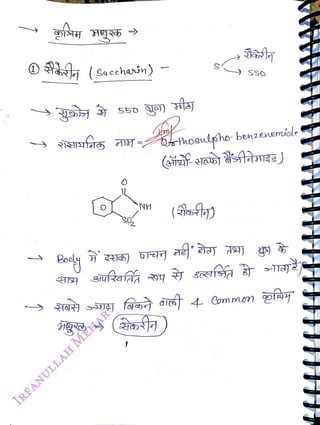 → कृत्रिम मधुरक →
① सैकेरीन (Saccharin) -
S → सैकेरीन
→ 550
→ सुक्रोज से 550 गुना मीठा
→ रासायनिक नाम = Orthosulpho-benzenemide
(ऑर्थो-सल्फो बैंजीनेमाइड)
O
O NH
SO₂
(सैकरीन)
→ Body में इसका पाचन नहीं होता तथा मूत्र के
साथ अपरिवर्तित रूप से उत्सर्जित हो जाता है
→ सबसे ज्यादा बिकने वाली 4 Common कृत्रिम
मधुरक → सैकरीन
IRFANULLAH MEHAR